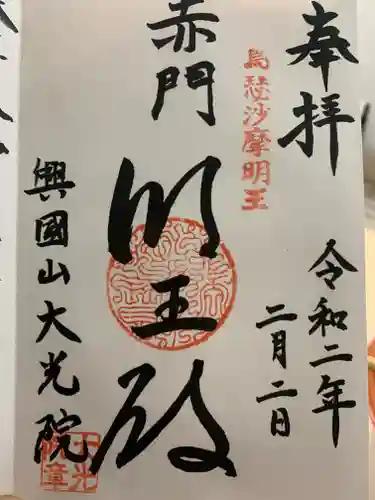 奉拝
令和二年
二月二日
烏瑟沙摩明王
赤門
明王殿
興國山大光院